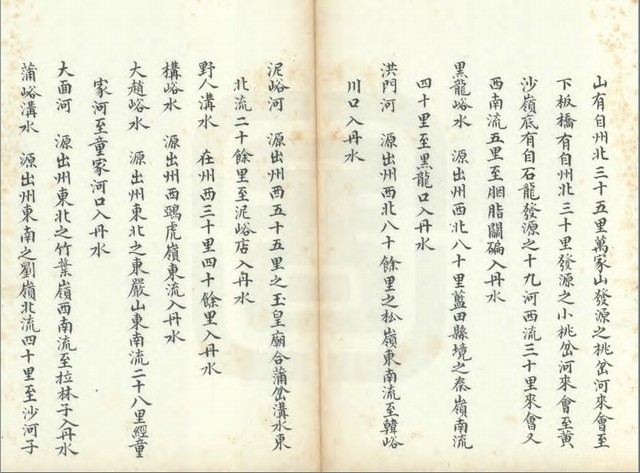 山有自州北三十五里萬家山發源之桃岔河來會至
下板橋有自州北三十里發源之小桃岔河來會至黃
沙嶺底有自石龍發源之十九河西流三十里來會又
西南流五里至胭脂關碥入丹水
黑龍峪水 源出州西北八十里藍田縣境之秦嶺南流
四十里至黑龍口入丹水
洪門河 源出州西北八十餘里之松嶺東南流至韓峪
川口入丹水
泥峪河 源出州西五十五里之玉皇廟合蒲岔溝水東
北流二十餘里至泥峪店入丹水
野人溝水 在州西三十里四十餘里入丹水
構峪水 源出州西鴞虎嶺東流入丹水
大趙峪水 源出州東北之東嚴山東南流二十八里經童
家河至童家河口入丹水
大面河 源出州東北之竹葉嶺西南流至拉林子入丹水
蒲峪溝水 源出州東南之劉嶺北流四十里至沙河子